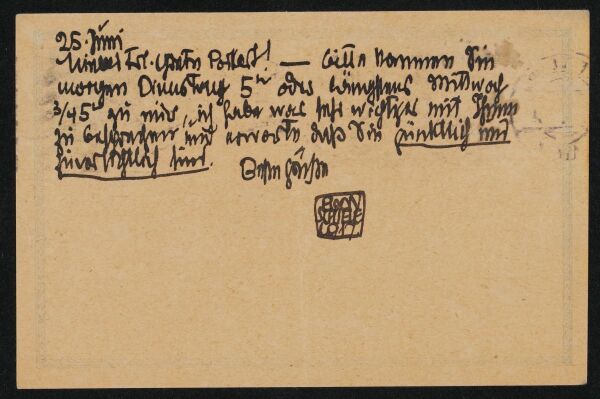 25. Juni
Liebes Frl. Grete Pollact! — bitte kommen Sie
morgen Dienstag 5h oder längstens Mittwoch
3/45h zu mir, ich habe was sehr wichtiges mit Ihnen
zu besprechen und erwarte daß Sie pünktlich und
zuverlässlich sind. Beste Grüße
EGON
SCHIELE
1917